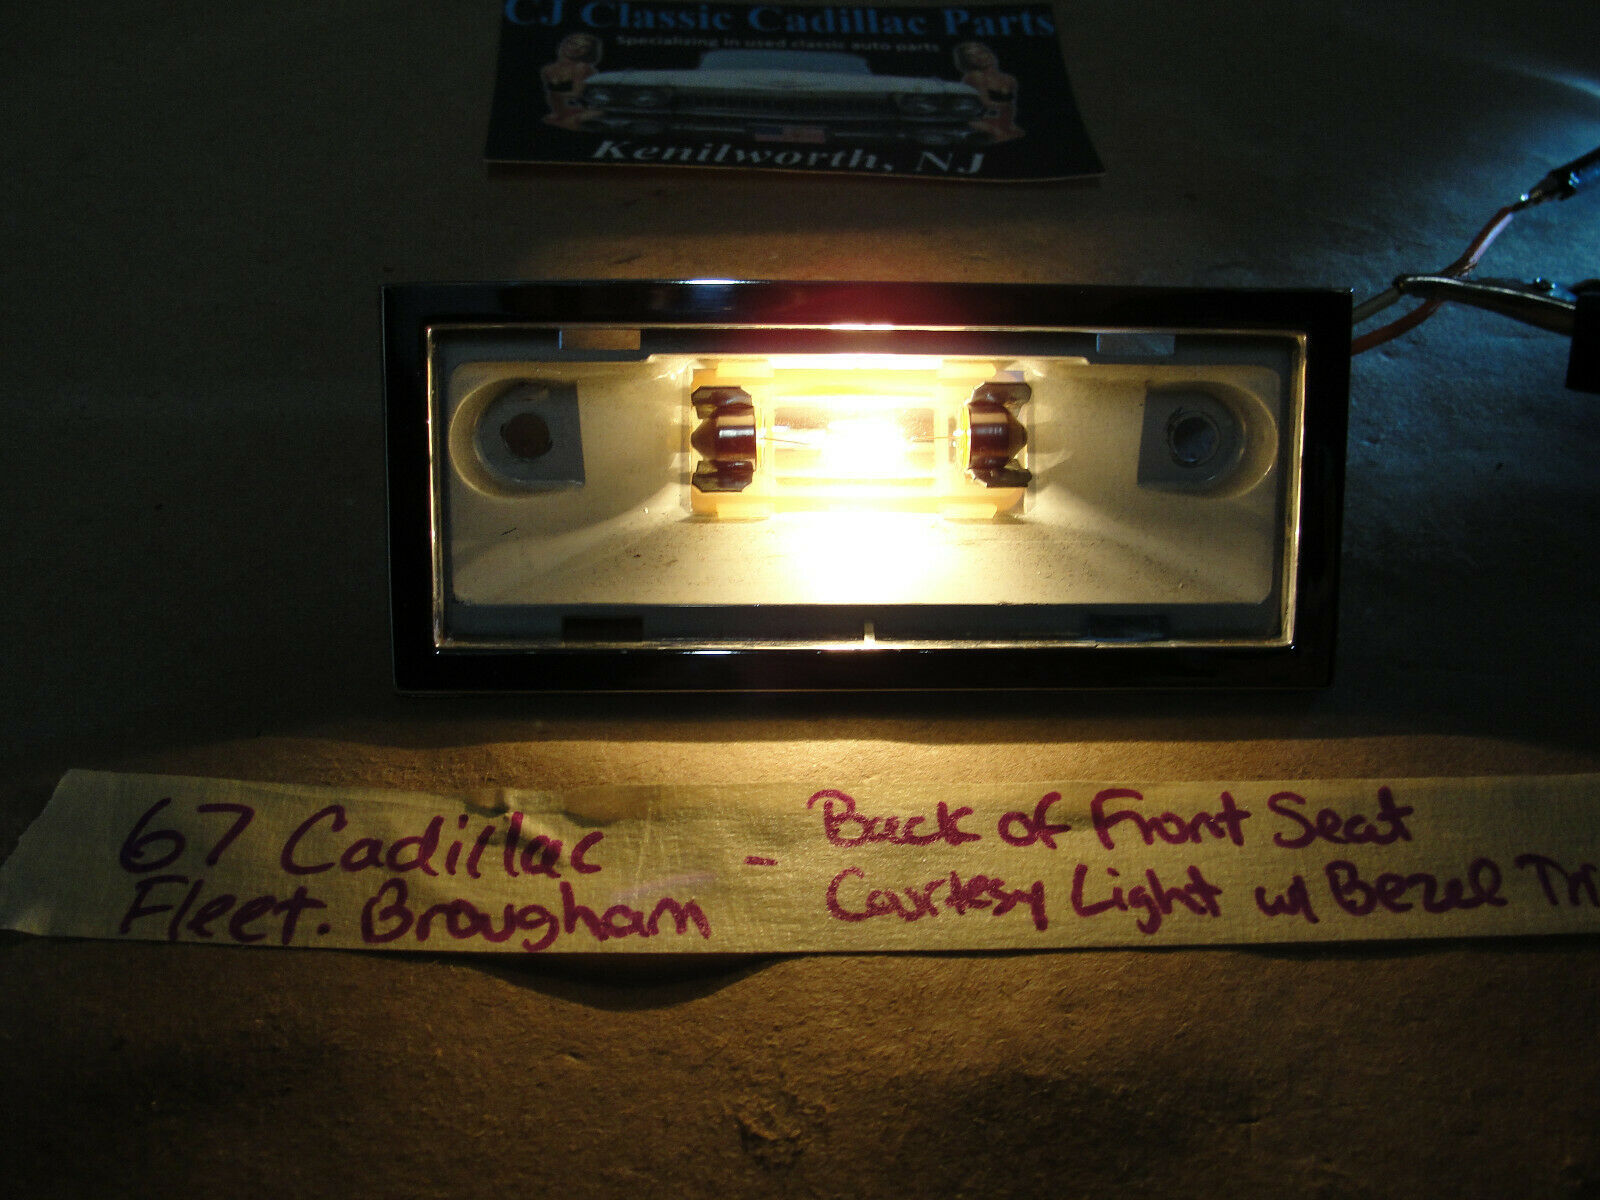 CJ Classic Cadillac Parts
Specializing in used classic auto parts
Kenilworth, NJ
67 Cadillac
Fleet. Brougham
- Back of Front Seat
Courtesy Light w/ Bezel Tri